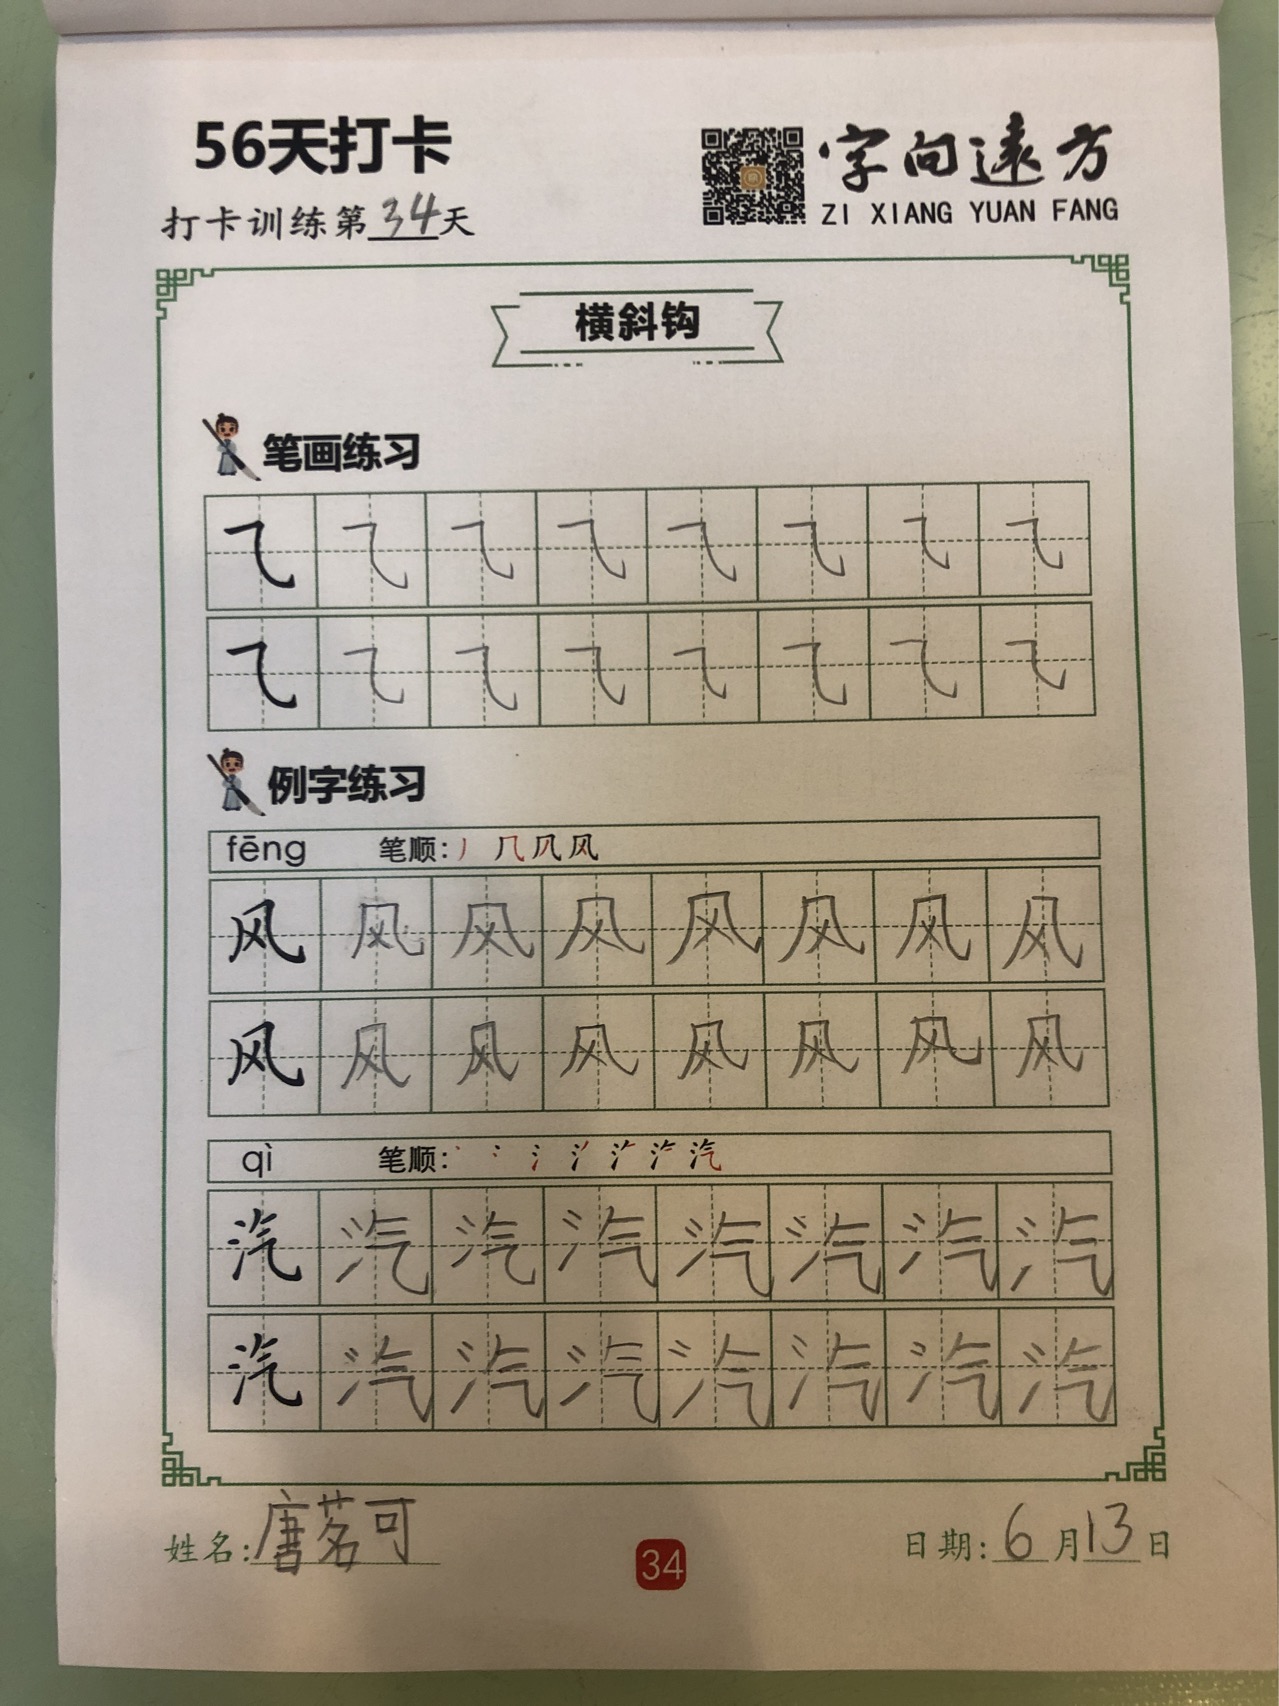 56天打卡
字向遠方
ZI XIANG YUAN FANG
打卡训练第34天
横斜钩
笔画练习
⺄ ⺄ ⺄ ⺄ ⺄ ⺄ ⺄ ⺄
⺄ ⺄ ⺄ ⺄ ⺄ ⺄ ⺄ ⺄
例字练习
fēng 笔顺: 丿 几 凤 风
风 风 风 风 风 风 风 风
风 风 风 风 风 风 风 风
qì 笔顺: 汽
汽 汽 汽 汽 汽 汽 汽 汽
汽 汽 汽 汽 汽 汽 汽 汽
姓名: 唐茗可
34
日期: 6月13日